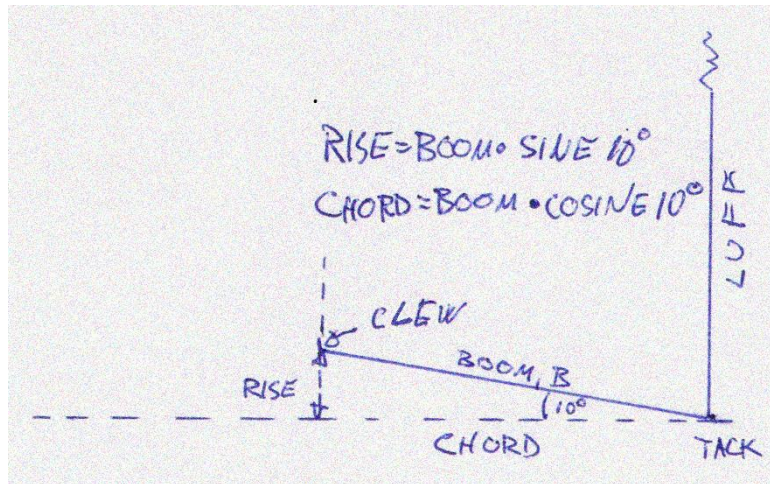 RISE=BOOM• SINE 10°
CHORD=BOOM •COSINE 10°
LUFF
CLEW
BOOM, B
RISE
10°
CHORD
TACK